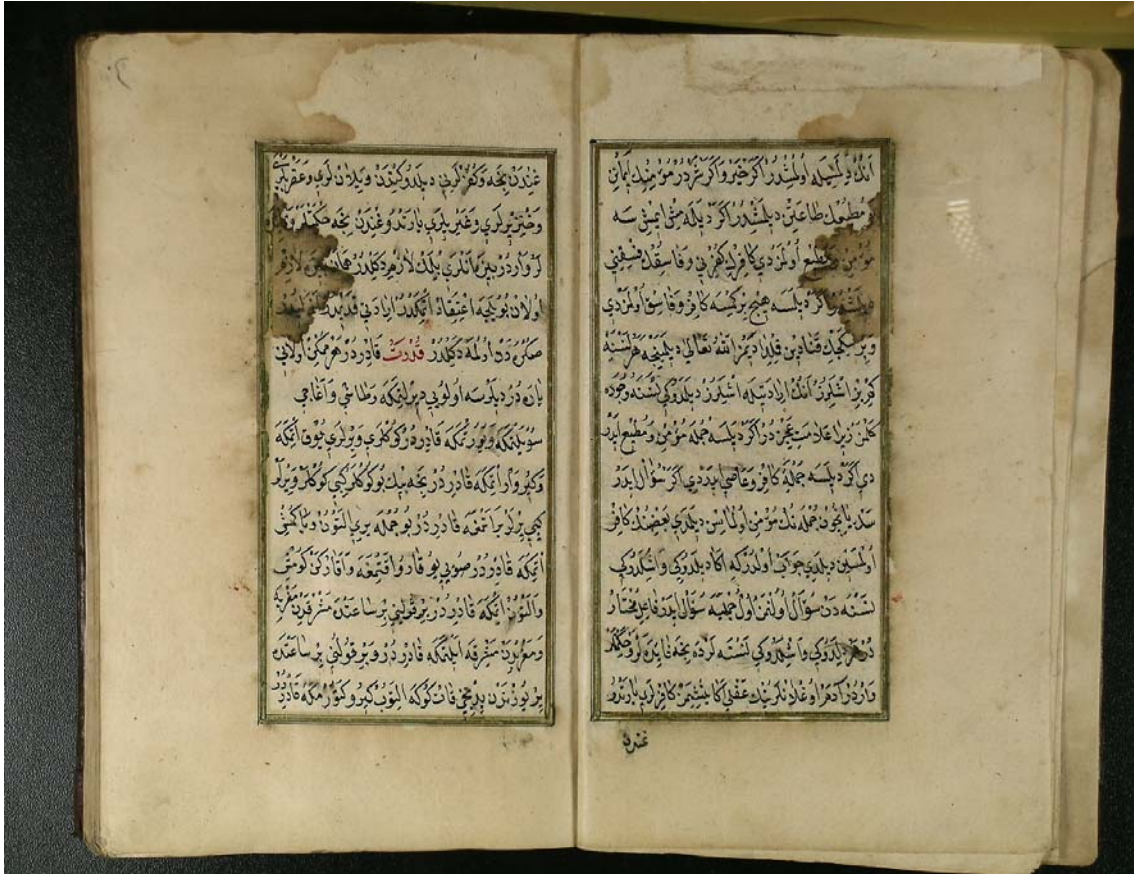 انك ديلمسيله اولمشدر اكر خير و اكر شر در مؤمنك ايمانن
و مطيعك طاعتن ديلمشدر اكر ديله مش ايمش سه
مؤمن و مطيع اولمزدي كافرك كفرني و فاسقك فسقني
ديلمشدر اكر ديلسه هيچ بر كمسه كافر و فاسق اولمزدي
و بر سكجك قنادين قلدادمز الله تعالى ديلمينجه هر نسنه
كم بز اشلرز انك اراد تيله اشلرز ديلمدوكي نسنه وجوده
كلمز زيرا علامت عجز در اكر ديلسه جمله مؤمن و مطيع ايدر
دي اكر ديلسه جمله كافر و عاصي ايدردي اكر سؤال ايدر
سك يا نيچون جمله نك مؤمن اولماسن ديلمدي بعضنك كافر
اولمسين ديلدي جواب اولدركه اكا ديلدوكي و اشلدوكي
نسنه دن سؤال اولنمز اول جمليه سؤال ايدر فاعل مختار
در هر ديلدوكي و اشلدوكي نسنه لرده نيجه فايده لر و حكمتلر
واردر آدم اوغلانلرينك عقلي اكا يتشمز كافرلري يارتدو
غندن
غندن نيجه و كفرلرني ديلدوكندن و ييلانلري و عقربلري
و خنزيرلري و غيريلري يارتدوغندن نيجه حكمتلر
لر واردر بيز انلري بيلمك لازم دكلدر همان لازم
اولان بويلجه اعتقاد اتمكدر ارادتي قديمدر
صكره دن اولمه دكلدر قدرت قادر در هر ممكن اولاني
يارادر ديلرسه اولويي ديريلتمكه و طاشي و آغاجي
سويلتمكه و يورتمكه قادر در كوكلري و يرلري يوق اتمكه
و كيرو وار اتمكه قادر در نيجه بيك بو كوكلر كبي كوكلر و يرلر
كبي يرلر يراتمغه قادر در بو جمله يري التون و يا كمش
اتمكه قادر در صويي يوقارو اقتمغه و آقاركن كومش
و التون اتمكه قادر در بر قولني بر ساعتده مشرقدن مغربه
و مغربدن مشرقه ايلتمكه قادر در و بر قولني بر ساعتده
بر يوزندن يدنجي قات كوكه التوب كيرو كتورمكه قادر در